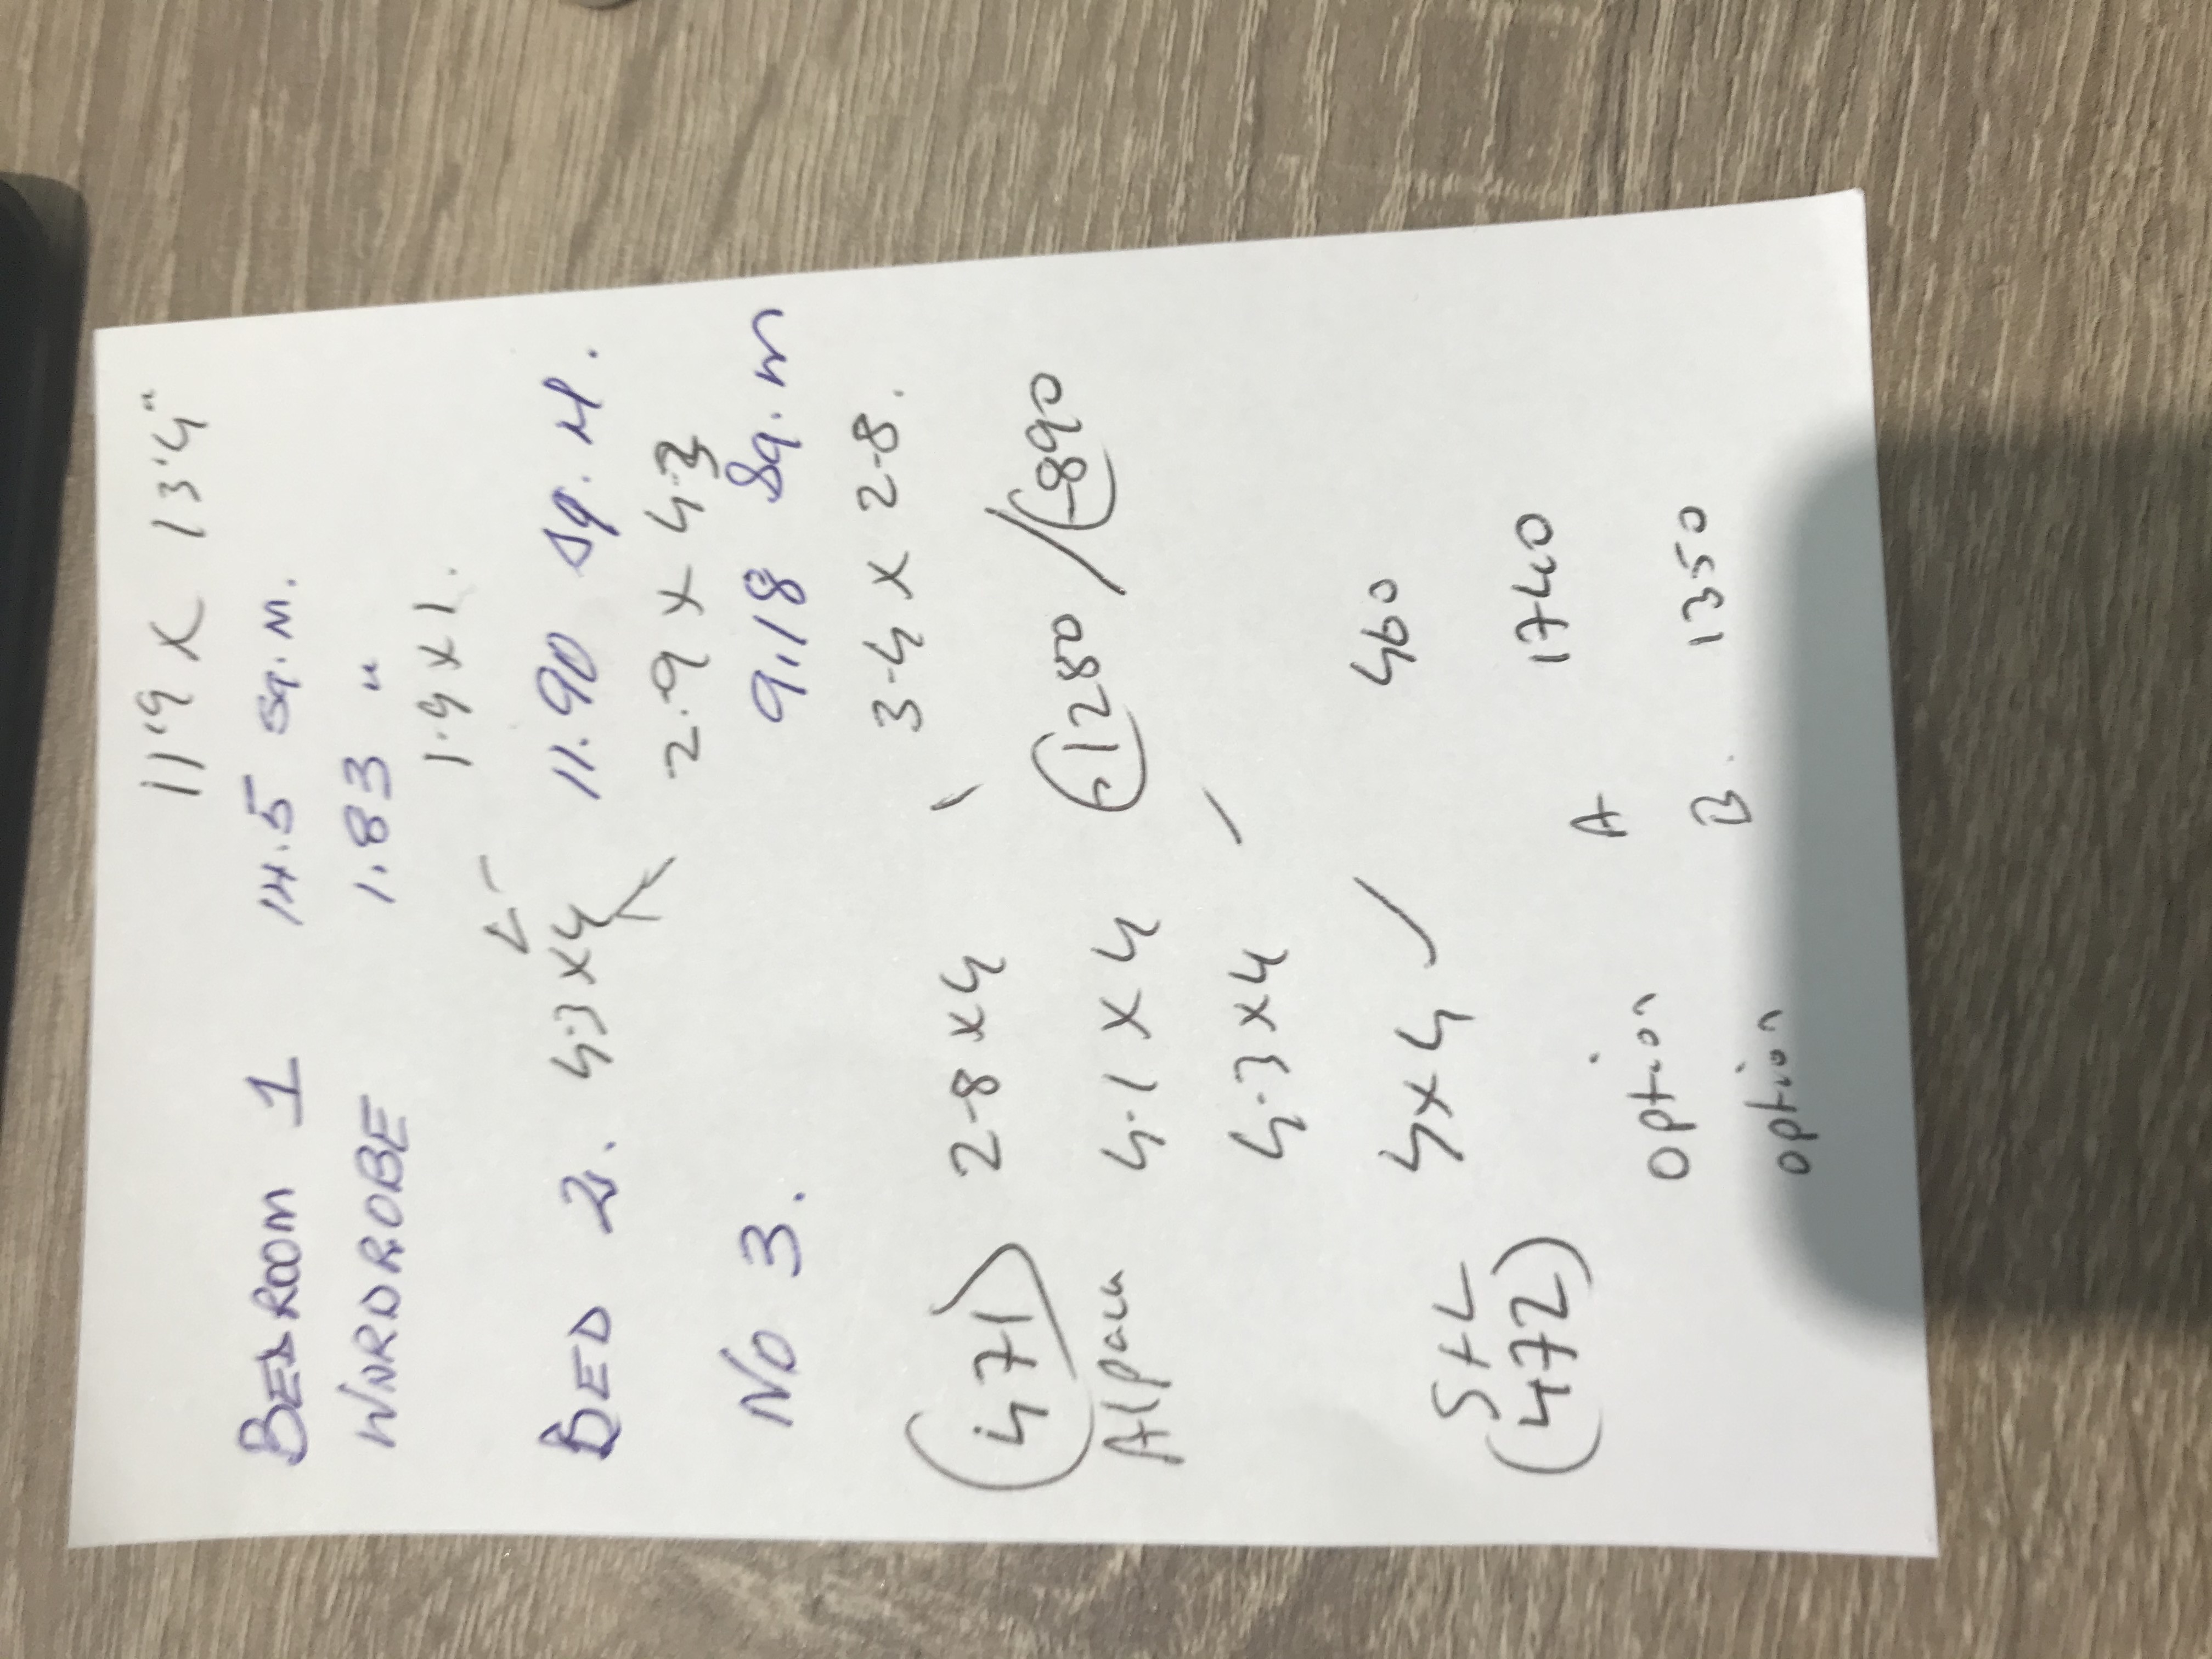 11'9 x 13'4"
BEDROOM 1 14.5 sq.m.
WARDROBE 1.83 "
1.9 x 1.
BED 2. 4.3 x 4 11.90 sq.M.
2.9 x 4.3
No 3. 9.18 Sq.m
3-4 x 2-8.
(471) 2-8 x 4
Alpaca 4.1 x 4 1280 / 890
4.3 x 4
S+L 4 x 4 460
(472)
option A 1740
option B. 1350